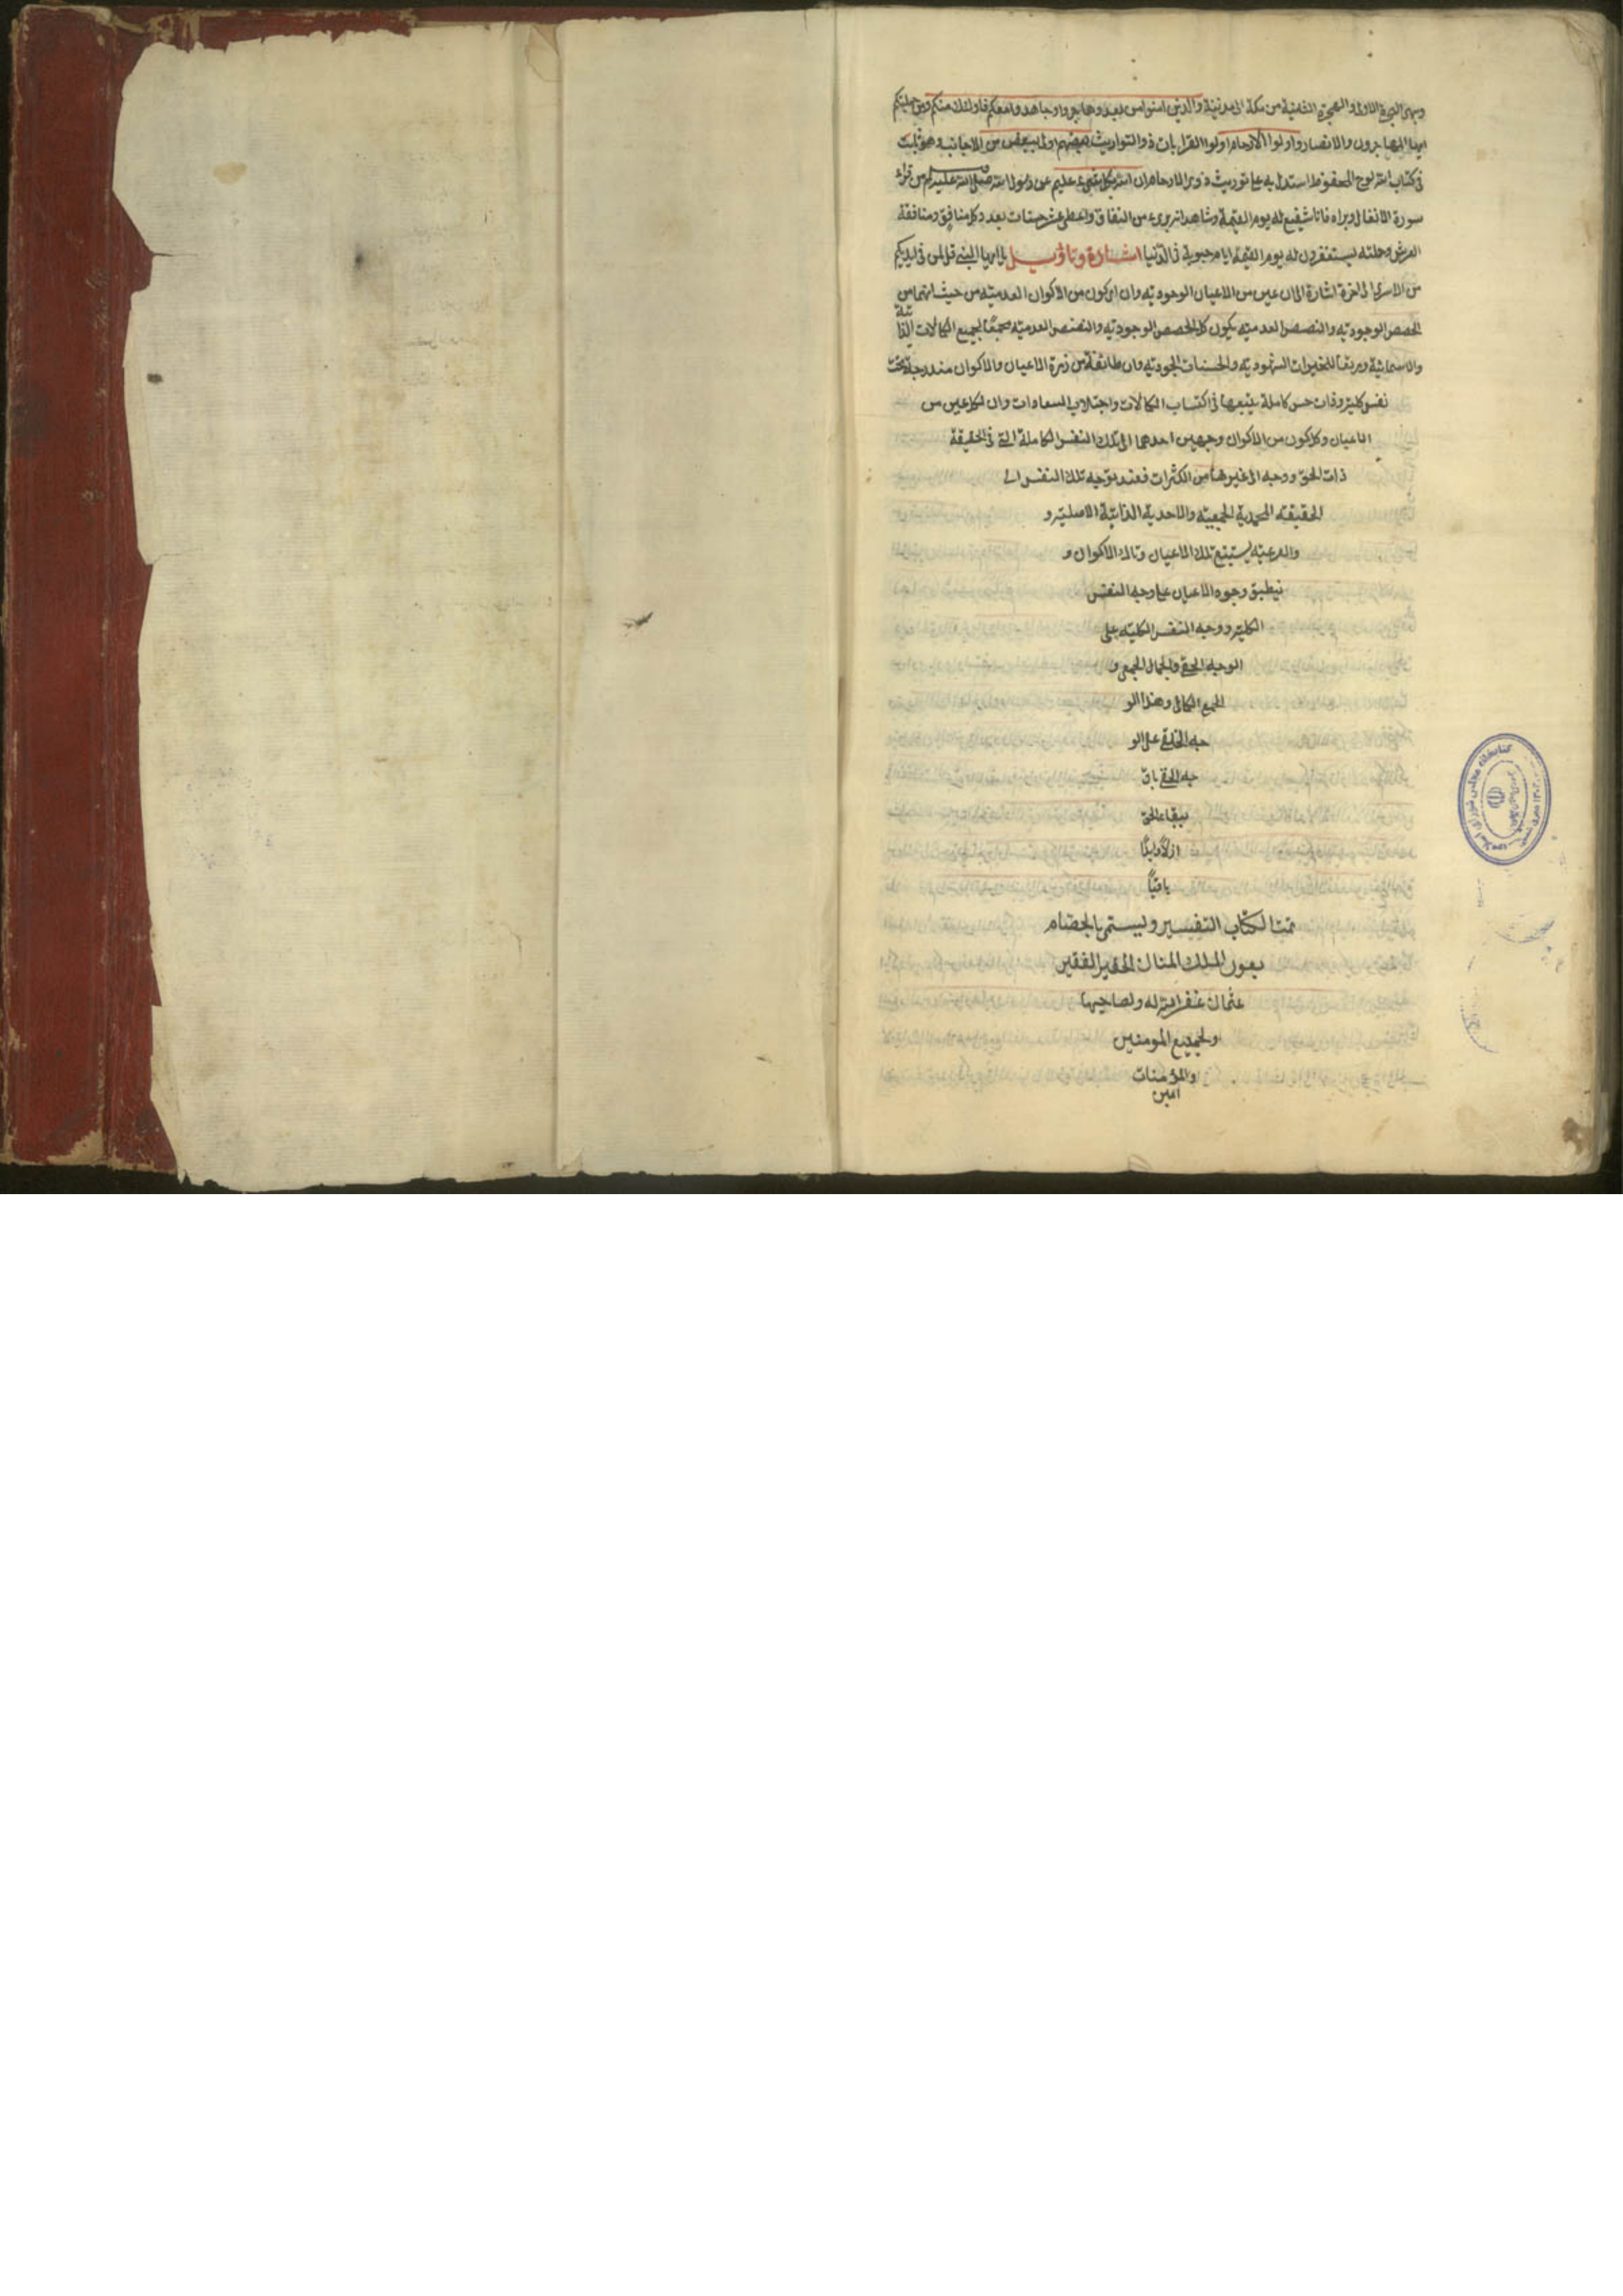 وبهى الهجرة الاولى والهجرة الثانية من مكة الى مدينة والذين امنوا من بعد وهاجروا وجاهدوا معكم فاولئك منكم ومن جملتكم
ايها المهاجرون والانصار واولوا الارحام اولوا القرابات ذو التواريث بعضهم اولى ببعض من الاجانب وهو ثابت
فى كتاب الله لوح المحفوظ استدل به على توريث ذوى الارحام ان الله بكل شىء عليم عن رسول الله صلى الله عليه وسلم من قراء
سورة الانفال وبراه فانا شفيع له يوم القيمة وشاهد انه برىء من النفاق واعطى عشر حسنات بعدد كل منافق ومنافقة
العرش وحملته يستغفرون له يوم القيمة ايام حيوية فى الدنيا اشارة وتاويل يا ايها النبى قل لمن فى ايديكم
من الاسرى الى اخره اشارة الى ان عين من الاعيان الوجودية وان اى كون من الاكوان العدمية من حيث انهما من
الحصص الوجودية والنصص العدمية يكون كل الحصص الوجودية والنصص العدمية مجمعًا لجميع الكمالات الذا
تية
والاسمائية ومريقا للخيرات الشهودية والحسنات الجودية وان طائفة من زمرة الاعيان والاكوان مندرجة تحت
نفس كلية وذات حس كاملة يتبعها فى اكتساب الكمالات واجتلاب السعادات وان لكل عين من
الاعيان وكل كون من الاكوان وجهين احدهما الى تلك النفس الكاملة التى فى الحقيقة
ذات الحق ووجه الى غيرها من الكثرات فعند توجه تلك النفس الى
الحقيقة المحمدية الجمعية والاحدية الذاتية الاصلية و
والفرعية يستتبع تلك الاعيان وتلك الاكوان و
ينطبق وجوه الاعيان على وجه النفس
الكلية ووجه النفس الكلية على
الوجه الحقى والجمال الجمعى و
الجمع الكمالى وهذا الو
جه الخلقى على الو
جه الحقى باق
ببقاء الحق
ازلًا وابدًا
باقيًا
تمت الكتاب التفسير وليسمى بالجضام
بعون الملك المنان الحقير الفقير
عثمان غفر الله له ولصاحبها
ولجميع المومنين
والمؤمنات
امين
كتابخانه مجلس شوراى